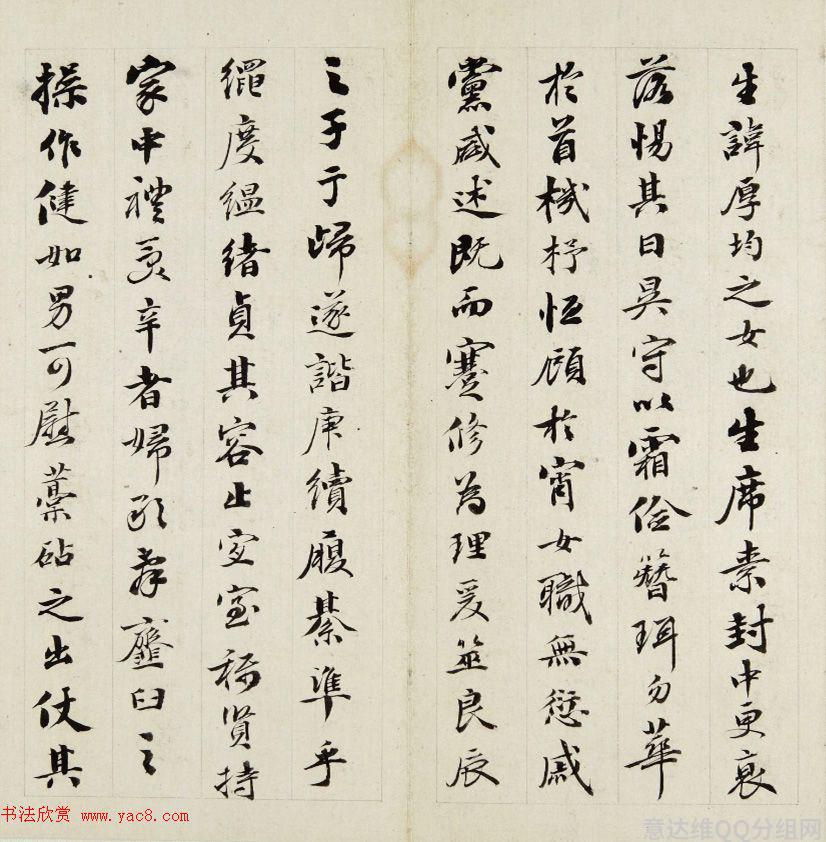 生諱厚均之女也生席素封中更衰
落惕其日昃守以霜儉簪珥勿華
於首機杼恒顧於宵女職無愆戚
黨咸述既而蹇修為理爰筮良辰
之子于歸遂諧庚續履綦準乎
繩度縕緒貞其容止宜室稱賢持
家中禮受辛者婦職弄虀臼之
操作健如男可慰藁砧之出仗其
书法欣赏 www.yac8.com
意达维QQ分组网